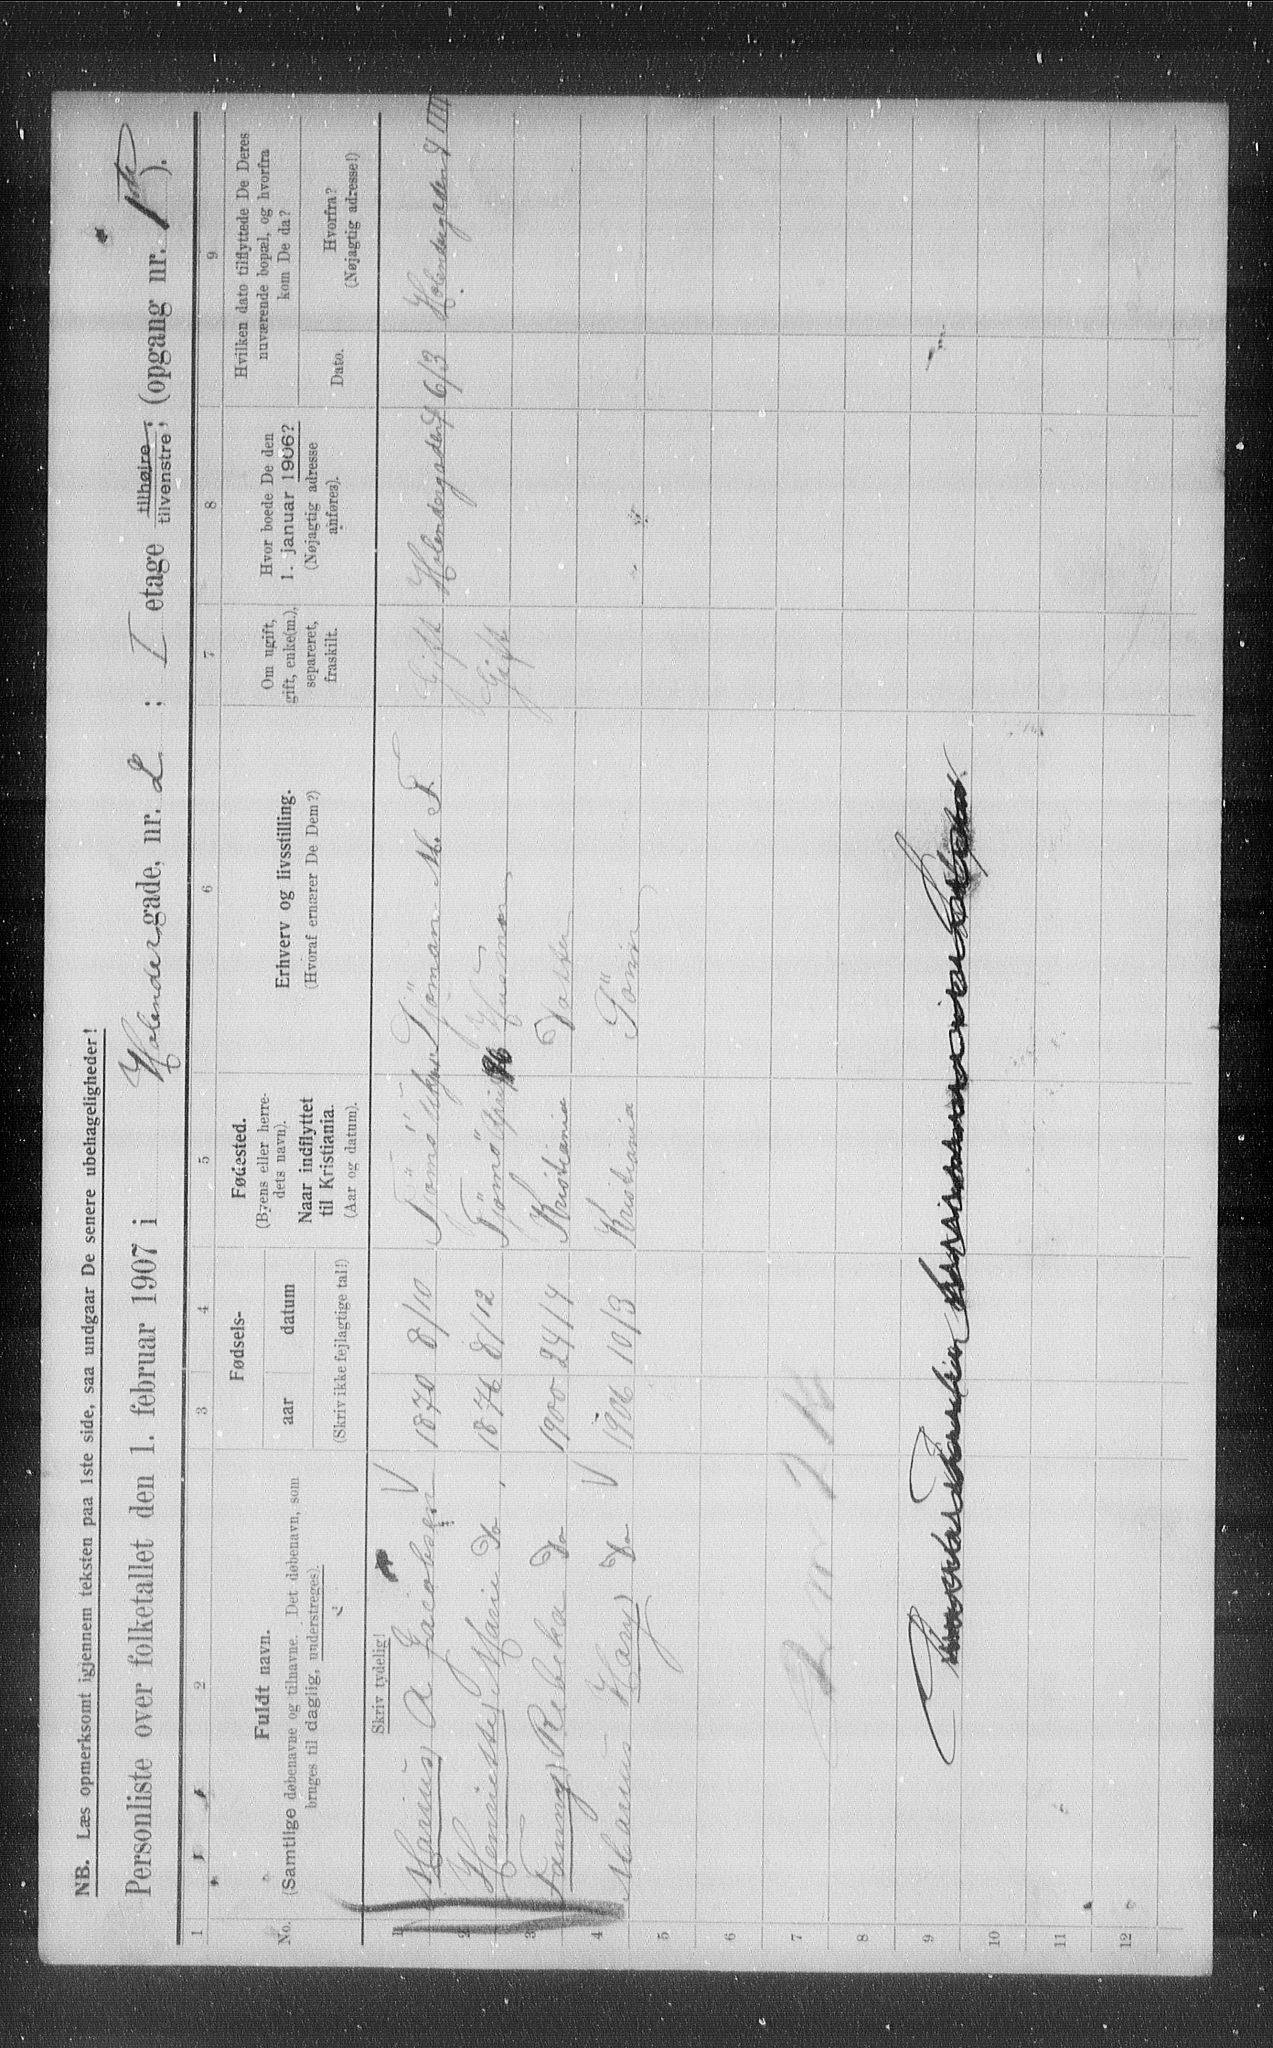 NB. Læs opmerksomt igjennem teksten paa 1ste side, saa undgaar De senere ubehageligheder!
Personliste over folketallet den 1. februar 1907 i Holender gade, nr. 2 ; I etage tilhøire, tilvenstre, (opgang nr. 1ste ).
1 2 3 4 5 6 7 8 9
No.
Fuldt navn.
(Samtlige døbenavne og tilnavne. Det døbenavn, som
bruges til daglig, understreges).
Fødsels-
aar datum
(Skriv ikke fejlagtige tal!)
Fødested.
(Byens eller herre-
dets navn).
Naar indflyttet
til Kristiania.
(Aar og datum).
Erhverv og livsstilling.
(Hvoraf ernærer De Dem?)
Om ugift,
gift, enke(m.),
separeret,
fraskilt.
Hvor boede De den
1. januar 1906?
(Nøjagtig adresse
anføres).
Hvilken dato tilflyttede De Deres
nuværende bopæl, og hvorfra
kom De da?
Dato.
Hvorfra?
(Nøjagtig adresse!)
Skriv tydelig!
1 Marius A Jacobsen 1870 8/10 Sjöman M. F. Gift Holendergaden 6/3 Holendergaden IIII
2 Henriette Marie Do 1876 8/12 Gift
3 Fanny Rebeka Do 1900 24/7 Kristiania Datter
4 Marius Harry Do 1906 10/3 Kristiania Sönn
5
6
7
8
9
10
11
12